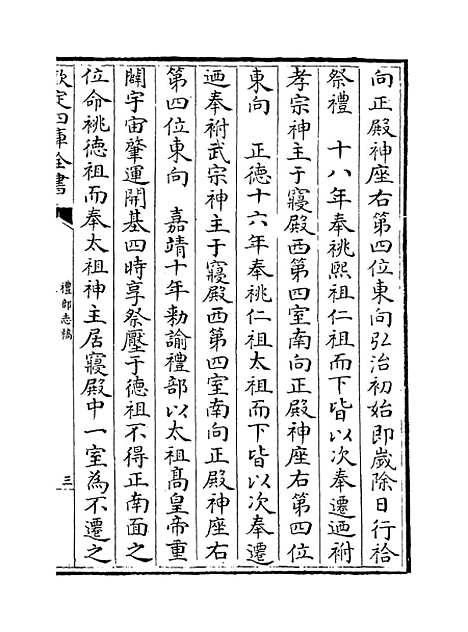 向正殿神座右第四位東向弘治初始即歲除日行祫
祭禮　十八年奉祧熙祖仁祖而下皆以次奉遷迺祔
孝宗神主于寢殿西第四室南向正殿神座右第四位
東向　正德十六年奉祧仁祖太祖而下皆以次奉遷
迺奉祔武宗神主于寢殿西第四室南向正殿神座右
第四位東向　嘉靖十年勅諭禮部以太祖髙皇帝重
闢宇宙肇運開基四時享祭壓于德祖不得正南面之
位命祧德祖而奉太祖神主居寢殿中一室為不遷之
欽定四庫全書
禮部志稿
三